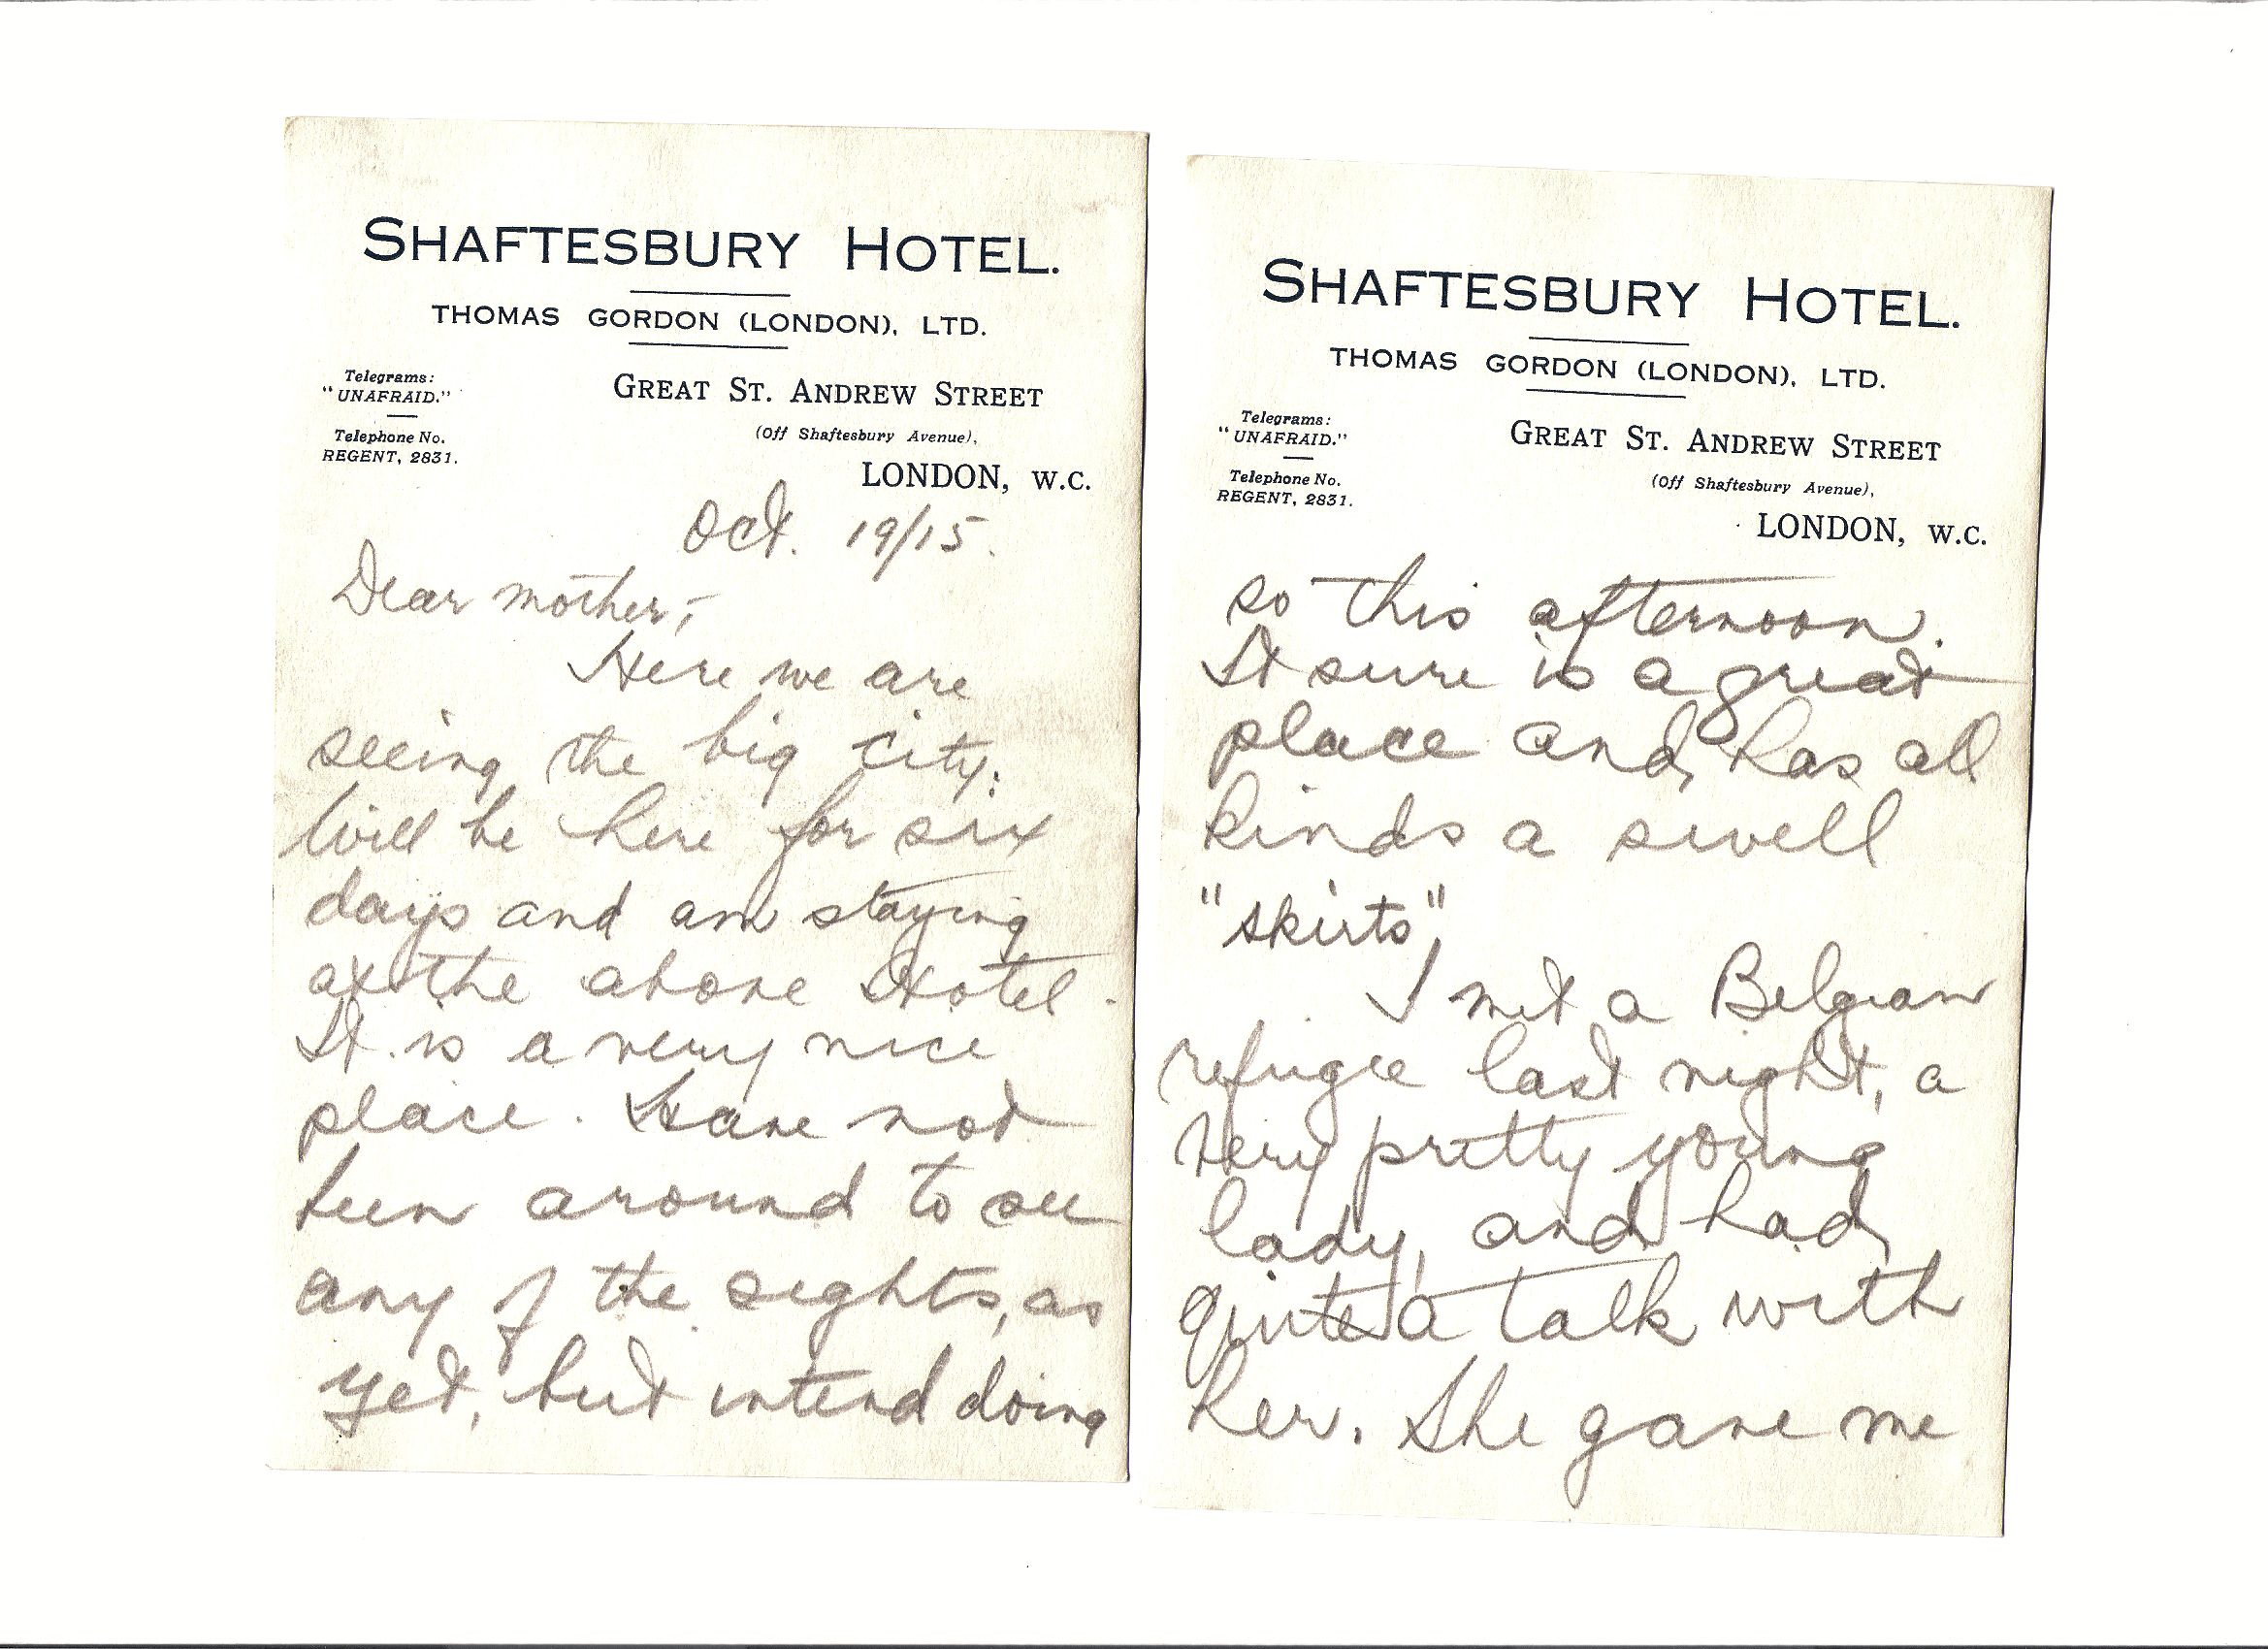 SHAFTESBURY HOTEL.
THOMAS GORDON (LONDON), LTD.
Telegrams:
"UNAFRAID."
Telephone No.
REGENT, 2831.
GREAT ST. ANDREW STREET
(Off Shaftesbury Avenue),
LONDON, W.C.
Oct. 19/15.
Dear mother,-
Here we are
seeing the big city.
Will be here for six
days and am staying
at the above Hotel.
It is a very nice
place. Have not
been around to see
any of the sights, as
yet, but intend doing
SHAFTESBURY HOTEL.
THOMAS GORDON (LONDON), LTD.
Telegrams:
"UNAFRAID."
Telephone No.
REGENT, 2831.
GREAT ST. ANDREW STREET
(Off Shaftesbury Avenue),
LONDON, W.C.
so this afternoon.
It sure is a great
place and has all
kinds a swell
"skirts".
I met a Belgian
refugee last night, a
very pretty young
lady, and had
quite a talk with
her. She gave me